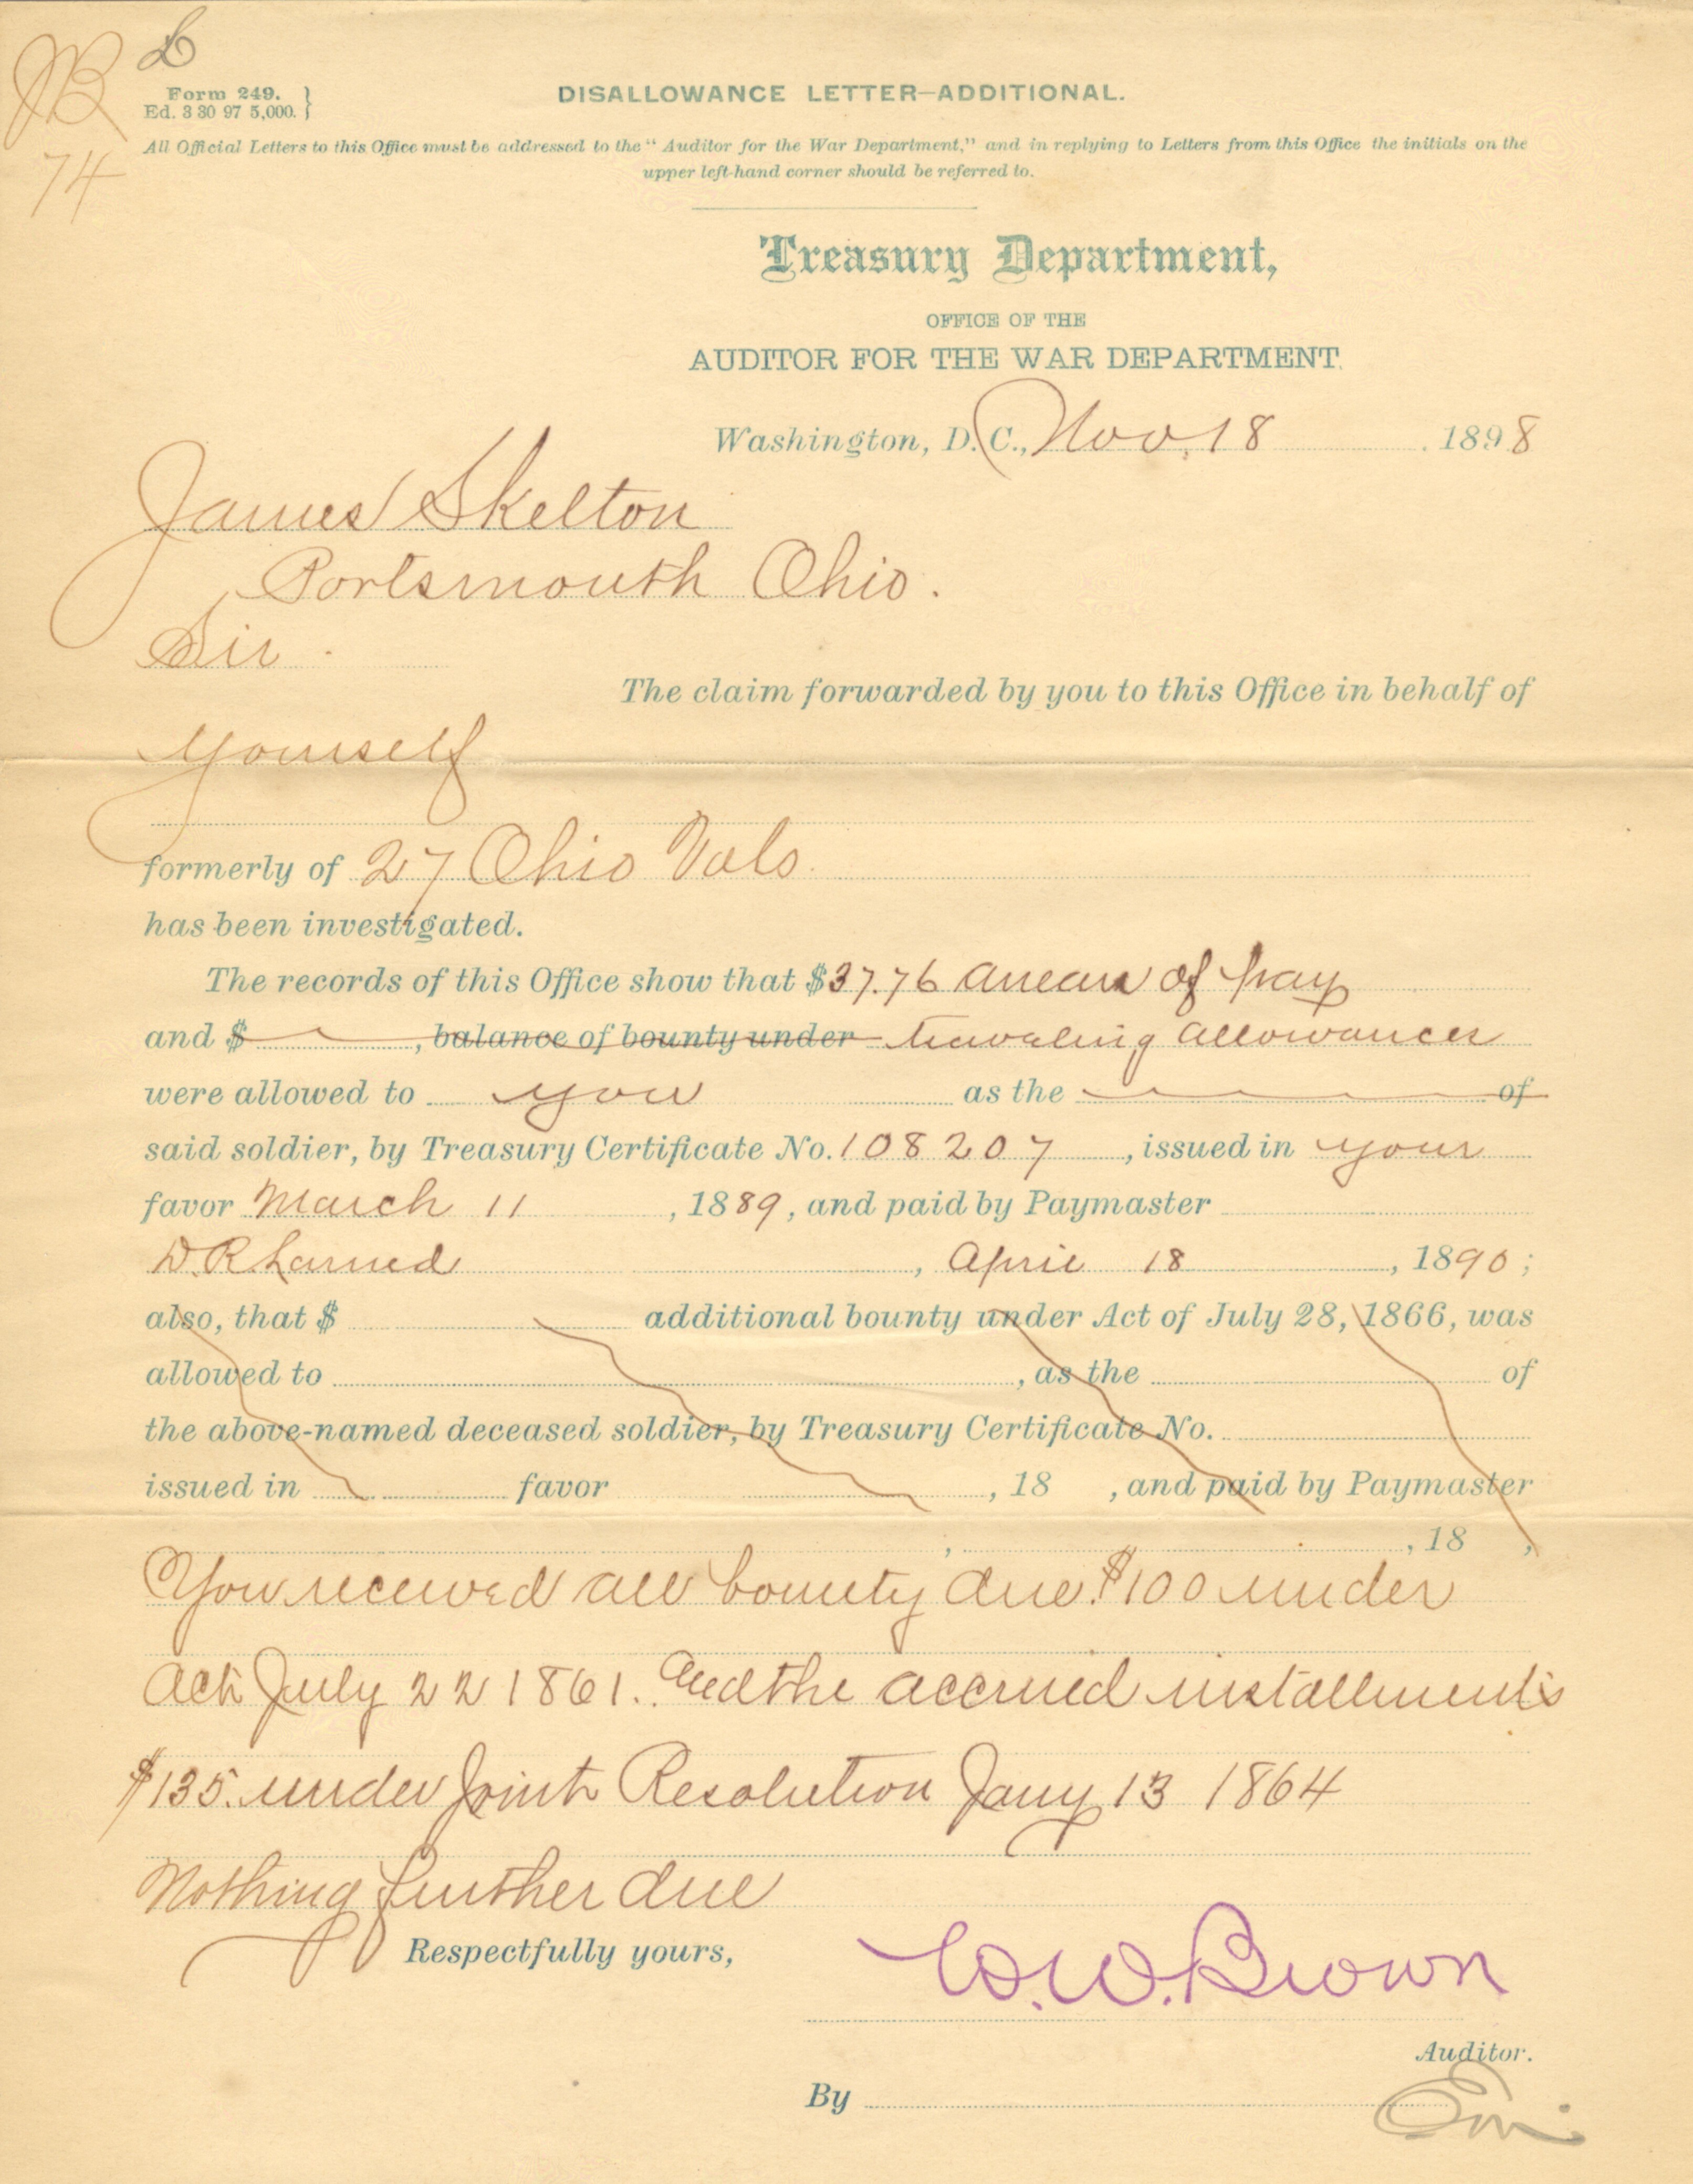 JB
74
Form 249.
Ed. 3 30 97 5,000.
DISALLOWANCE LETTER—ADDITIONAL.
All Official Letters to this Office must be addressed to the "Auditor for the War Department," and in replying to Letters from this Office the initials on the
upper left-hand corner should be referred to.
Treasury Department,
OFFICE OF THE
AUDITOR FOR THE WAR DEPARTMENT.
Washington, D. C., Nov. 18 1898
James Skelton
Portsmouth Ohio.
Sir.
The claim forwarded by you to this Office in behalf of
yourself
formerly of 27 Ohio Vols.
has been investigated.
The records of this Office show that $37.76 arrears of pay
and $ , balance of bounty under traveling allowances
were allowed to you as the of
said soldier, by Treasury Certificate No. 108207, issued in your
favor March 11, 1889, and paid by Paymaster
D. R. Larned, April 18, 1890;
also, that $ additional bounty under Act of July 28, 1866, was
allowed to , as the of
the above-named deceased soldier, by Treasury Certificate No.
issued in favor , 18 , and paid by Paymaster
, , 18 ,
You received all bounty due. $100 under
Act July 22 1861. And the accrued installments
$135. under Joint Resolution Jany 13 1864
Nothing further due
Respectfully yours,
W. W. Brown
Auditor.
By